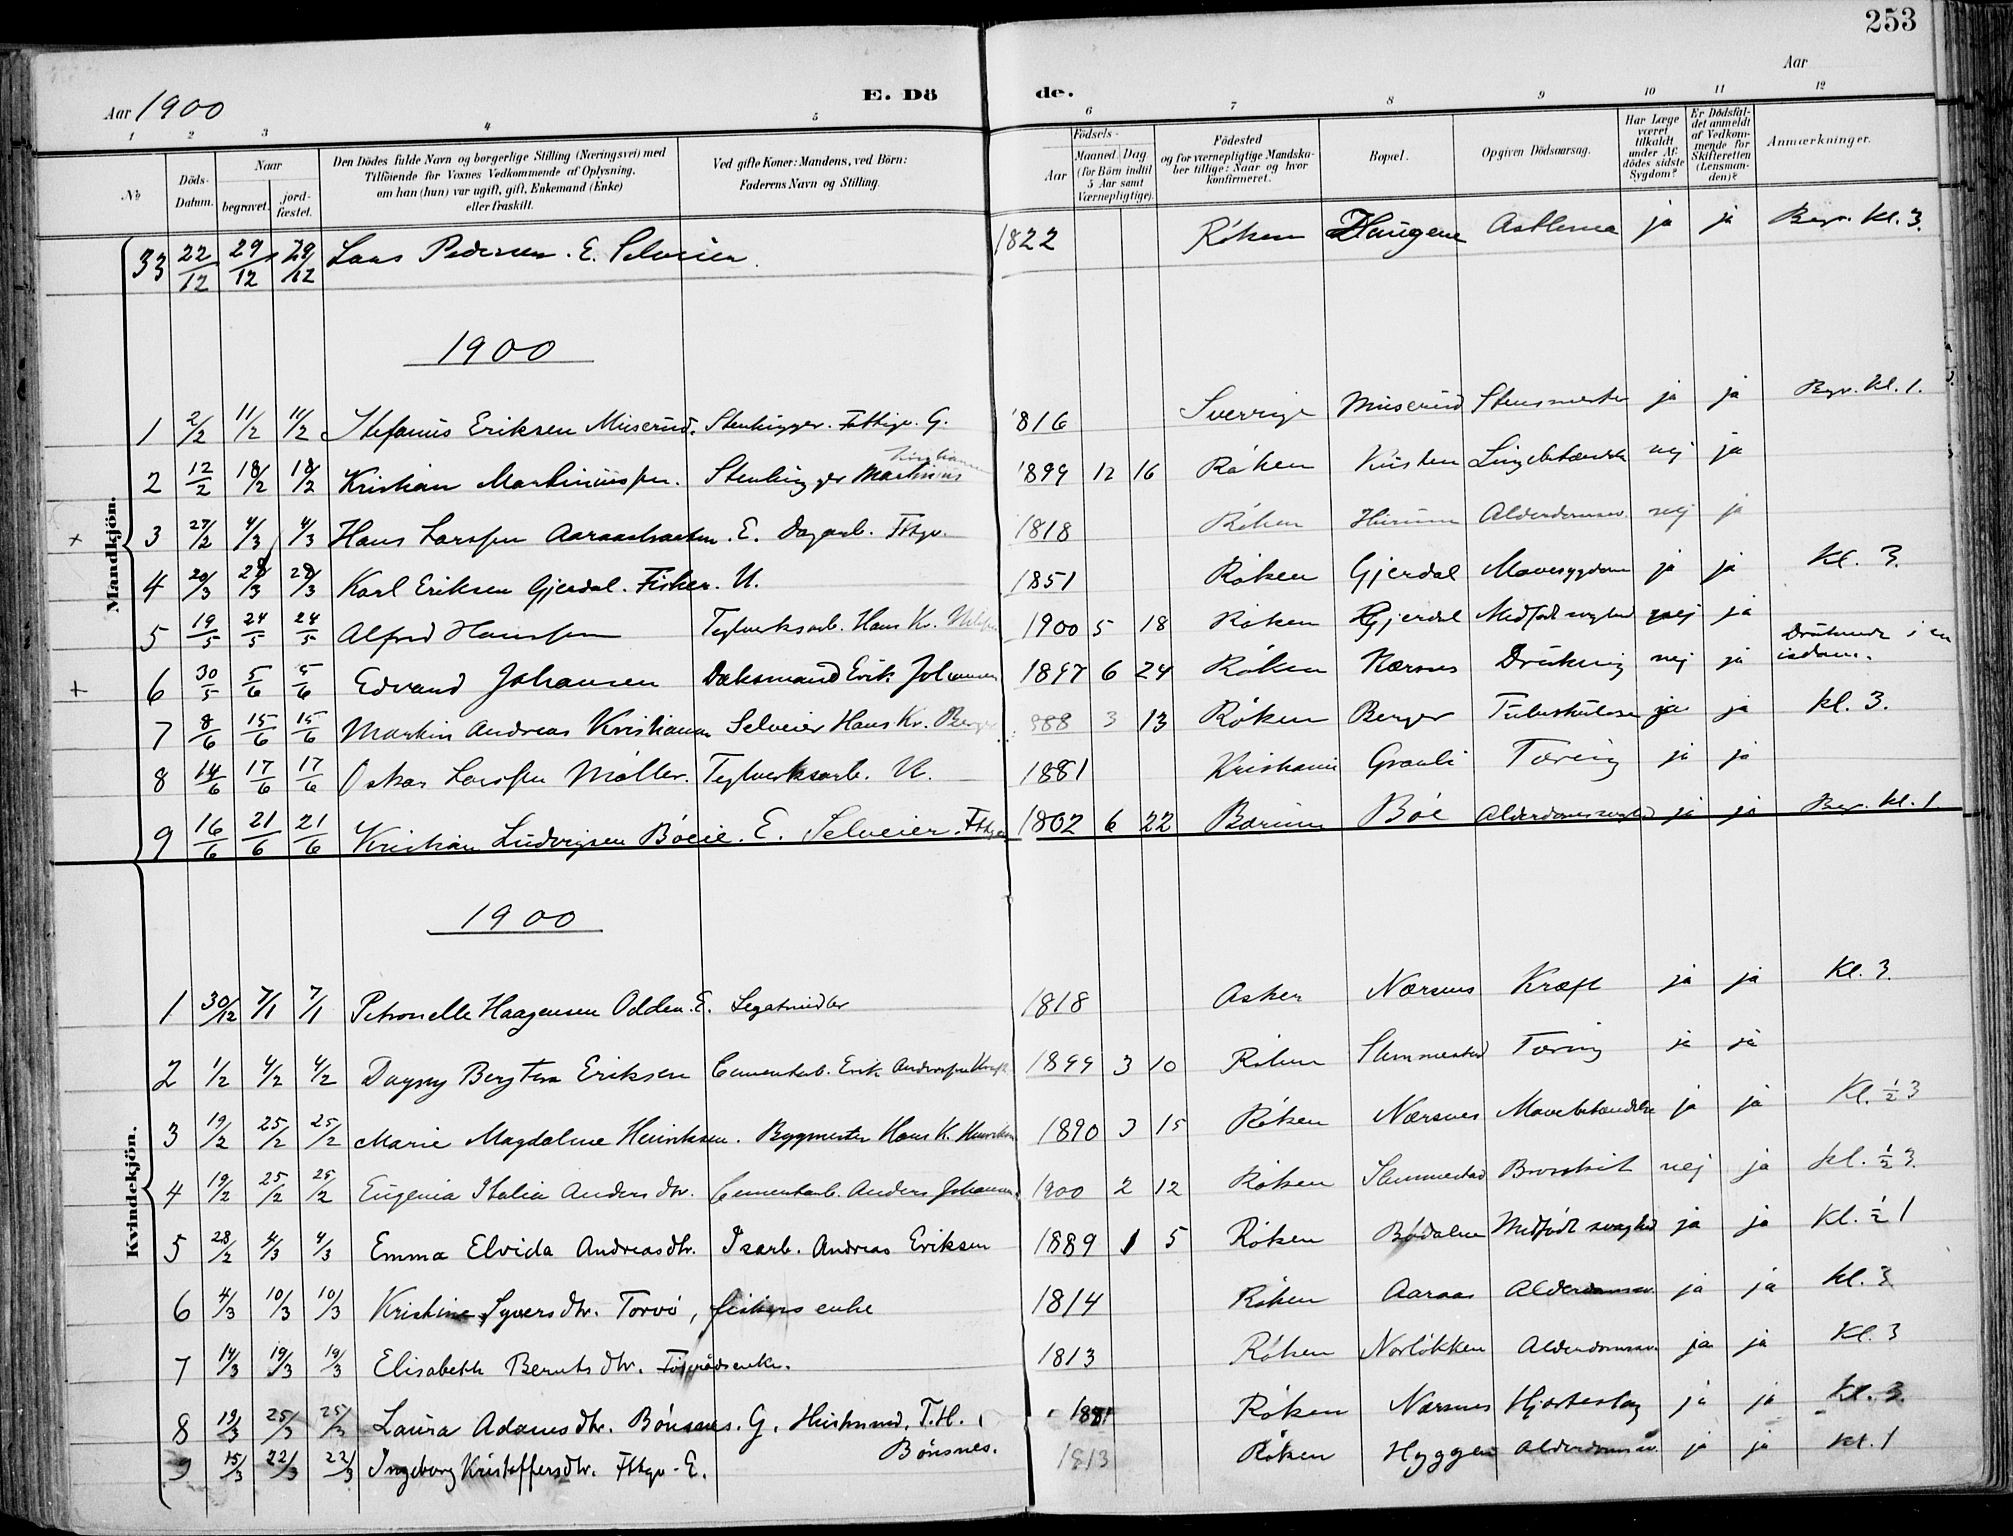 253
Aar 1900 E. Dö de. Aar
1 2 3 4 5 6 7 8 9 10 11 12
No. Döds-Datum. Naar begravet. jordfæstet. Den Dödes fulde Navn og borgerlige Stilling (Næringsvei) med Tilföiende for Voxnes Vedkommende af Oplysning, om han (hun) var ugift, gift, Enkemand (Enke) eller fraskilt. Ved gifte Koner: Mandens, ved Börn: Faderens Navn og Stilling. Födsels- Aar Maaned Dag (for Börn indtil 5 Aar samt Værnepligtige). Födested og for værnepligtige Mandskaber tillige: Naar og hvor konfirmeret. Bopæl. Opgiven Dödsaarsag. Har Læge været tilkaldt under Afdödes sidste Sygdom? Er Dödsfaldet anmeldt af Vedkommende for Skifteretten (Lensmanden)? Anmærkninger.
Mandkjön.
33 22/12 29/12 29/12 Lars Pedersen. E. Selveier. 1822 Röken Haugene Asthma ja ja Begr. Kl. 3.
1900
1 2/2 11/2 11/2 Stefanus Eriksen Muserud. Stenhugger. Fattigv. G. 1816 Sverrige Muserud ja ja Begr. Kl. 1.
2 12/2 18/2 18/2 Kristian Martiniussen. Stenhugger Martinius 1899 12 16 Röken Lungebetændelse nej ja
+ 3 27/2 4/3 4/3 Hans Larssen . E. Dagarb. Fttgv. 1818 Röken Hurum Alderdomssv. nej ja
4 20/3 28/3 28/3 Karl Eriksen Gjerdal. Fisker. U. 1851 Röken Gjerdal Mavesygdom ja ja Kl. 3.
5 19/5 24/5 24/5 Alfred Hanssen Teglverksarb. Hans Kr. 1900 5 18 Röken Gjerdal Medfödt svaghed nej ja
+ 6 30/5 5/6 5/6 Edvard Johansen Erik Johansen 1897 6 24 Röken Nærsnes Drukning nej ja Druknede i en isdam.
7 8/6 15/6 15/6 Martin Andreas Kristiansen Selveier Hans Kr. Berger 1888 3 13 Röken Berger Tuberkulose ja ja Kl. 3.
8 14/6 17/6 17/6 Oskar Larssen Möller. Teglverksarb. U. 1881 Kristiania Grauli Tæring ja ja
9 16/6 21/6 21/6 Kristian Ludvigsen Böeie. E. Selveier. Fttgv. 1802 6 22 Bærum Böe Alderdomssvaghed ja ja Begr. Kl. 1
Kvindekjön.
1900
1 30/12 7/1 7/1 Petronelle Haagensen Odden. E. Legatnidler 1818 Asker Nærsnes Kræft ja ja Kl. 3.
2 1/2 4/2 4/2 Dagny Eriksen Cementarb. Erik 1899 3 10 Röken Slemmestad Tæring ja ja
3 19/2 25/2 25/2 Marie Magdalene Henriksen. Bygmester Hans K. Henriksen 1890 3 15 Röken Nærsnes Mavebetændelse ja ja Kl. 1/2 3
4 19/2 25/2 25/2 Eugenia Italia Andersdtr. Cementarb. Anders Johansen 1900 2 12 Röken Slemmestad Bronkit nej ja Kl. 1/2 3.
5 28/2 4/3 4/3 Emma Elvida Andreasdtr. Isarb. Andreas Eriksen 1889 1 5 Röken Bödalen Medfödt svaghed ja ja Kl. 1/2 1
6 4/3 10/3 10/3 Kristine Syversdtr. Torvö, fiskers enke 1814 Röken Aaraas Alderdomssv. ja ja Kl. 3
7 14/3 19/3 19/3 Elisabeth Berntsdtr. Föderådsenke. 1813 Röken Norlökken Alderdomssv. ja ja Kl. 3
8 19/3 25/3 25/3 Laura Adamsdtr. Bönsnes. G. Husmand. T.H. Bönsnes. 1881 Röken Nærsnes Hjerteslag ja ja Kl. 3.
9 15/3 22/3 22/3 Ingeborg Kristoffersdtr. Fttgv. E. 1813 Röken Hyggen Alderdomssv. ja ja Kl. 1